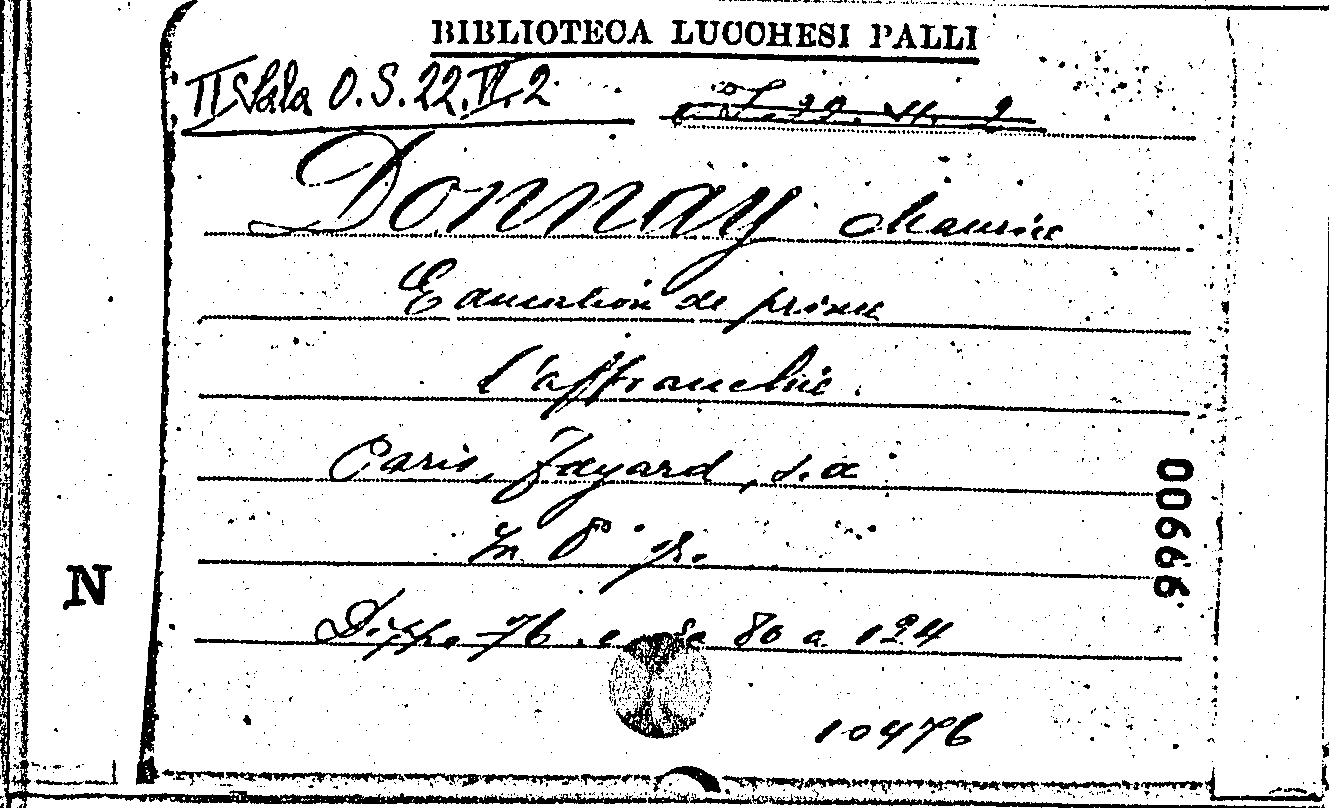 BIBLIOTECA LUCCHESI PALLI
II Sala O.S. 22.VI.2
Donnay Maurice
Education de prince
l'affranchie.
Paris, Fayard, s.a
In 8° p.
Disp. 76 e da 80 a 124
10476
00666
N